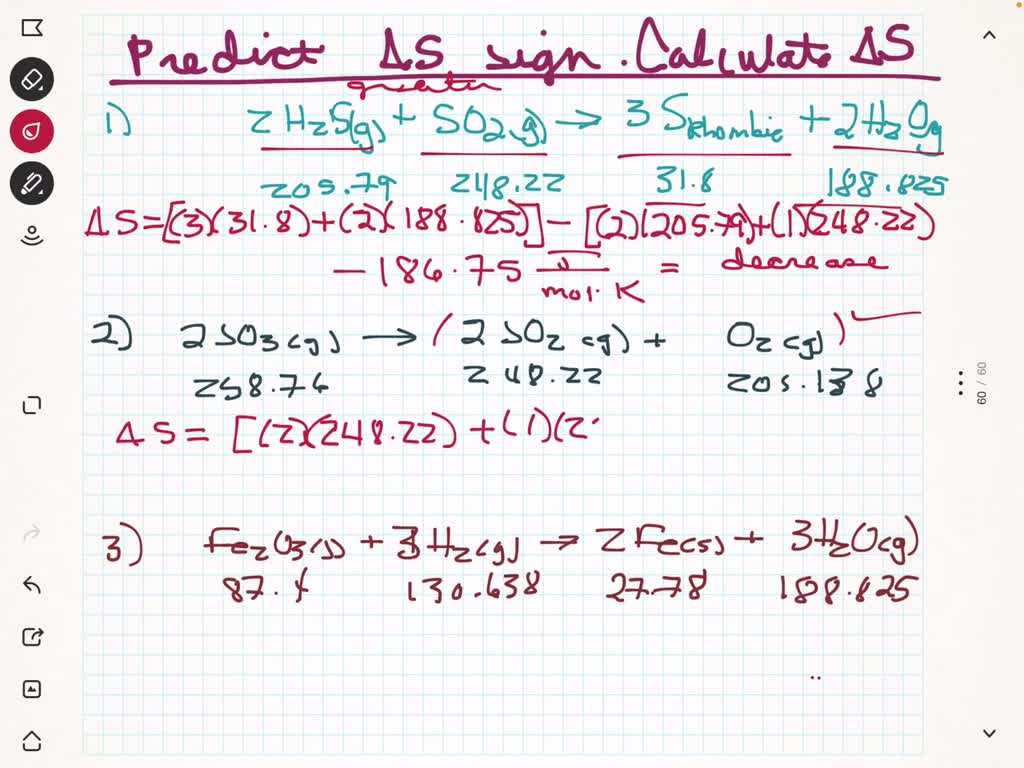 Predict ΔS sign. Calculate ΔS
greater
1) 2 H2S(g) + SO2(g) → 3 SRhombic + 2H2Og
205.79 248.22 31.8 188.825
ΔS = [(3)(31.8)+(2)(188.825)] - [(2)(205.79)+(1)(248.22)
-186.75 J/mol·K = decrease
2) 2SO3(g) → (2SO2(g) + O2(g))
248.22 205.138
ΔS = [(2)(248.22) + (1)(2
3) Fe2O3(s) + 3H2(g) → 2Fe(s) + 3H2O(g)
87.4 130.638 27.78 188.825
60 / 60